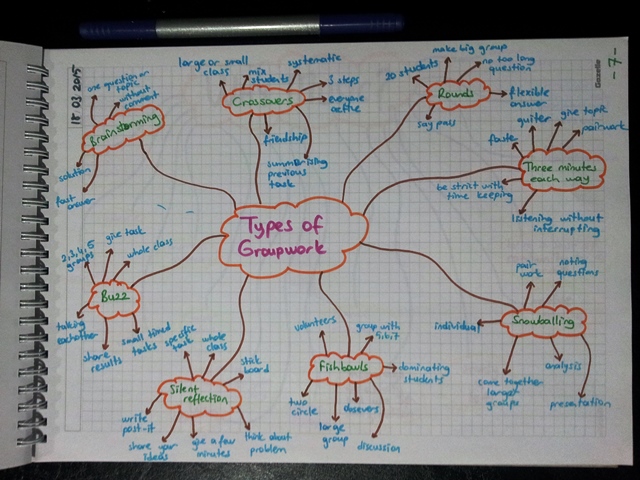 18 03 2015
Gazelle
- 7 -
Types of
Groupwork
Brainstorming
one question or
topic
without
comment
solution
fast
answer
Crossovers
large or small
class
mix
students
systematic
3 steps
everyone
active
friendship
summarising
previous
task
Rounds
20 students
make big group
no too long
question
flexible
answer
say pass
Three minutes
each way
faste
quiter
give topic
pairwork
be strict with
time keeping
listening without
interrupting
Snowballing
pair
work
noting
questions
individual
come together
larger
groups
analysis
presentation
Fishbowls
volunteers
group with
dominating
students
two
circle
large
group
obsevers
discussion
Silent
reflection
specific
task
whole
class
stick
board
write
post-it
share your
ideas
give a few
minutes
think about
problem
Buzz
2,3,4,5
groups
give task
whole class
taking
eachother
share
results
small timed
tasks